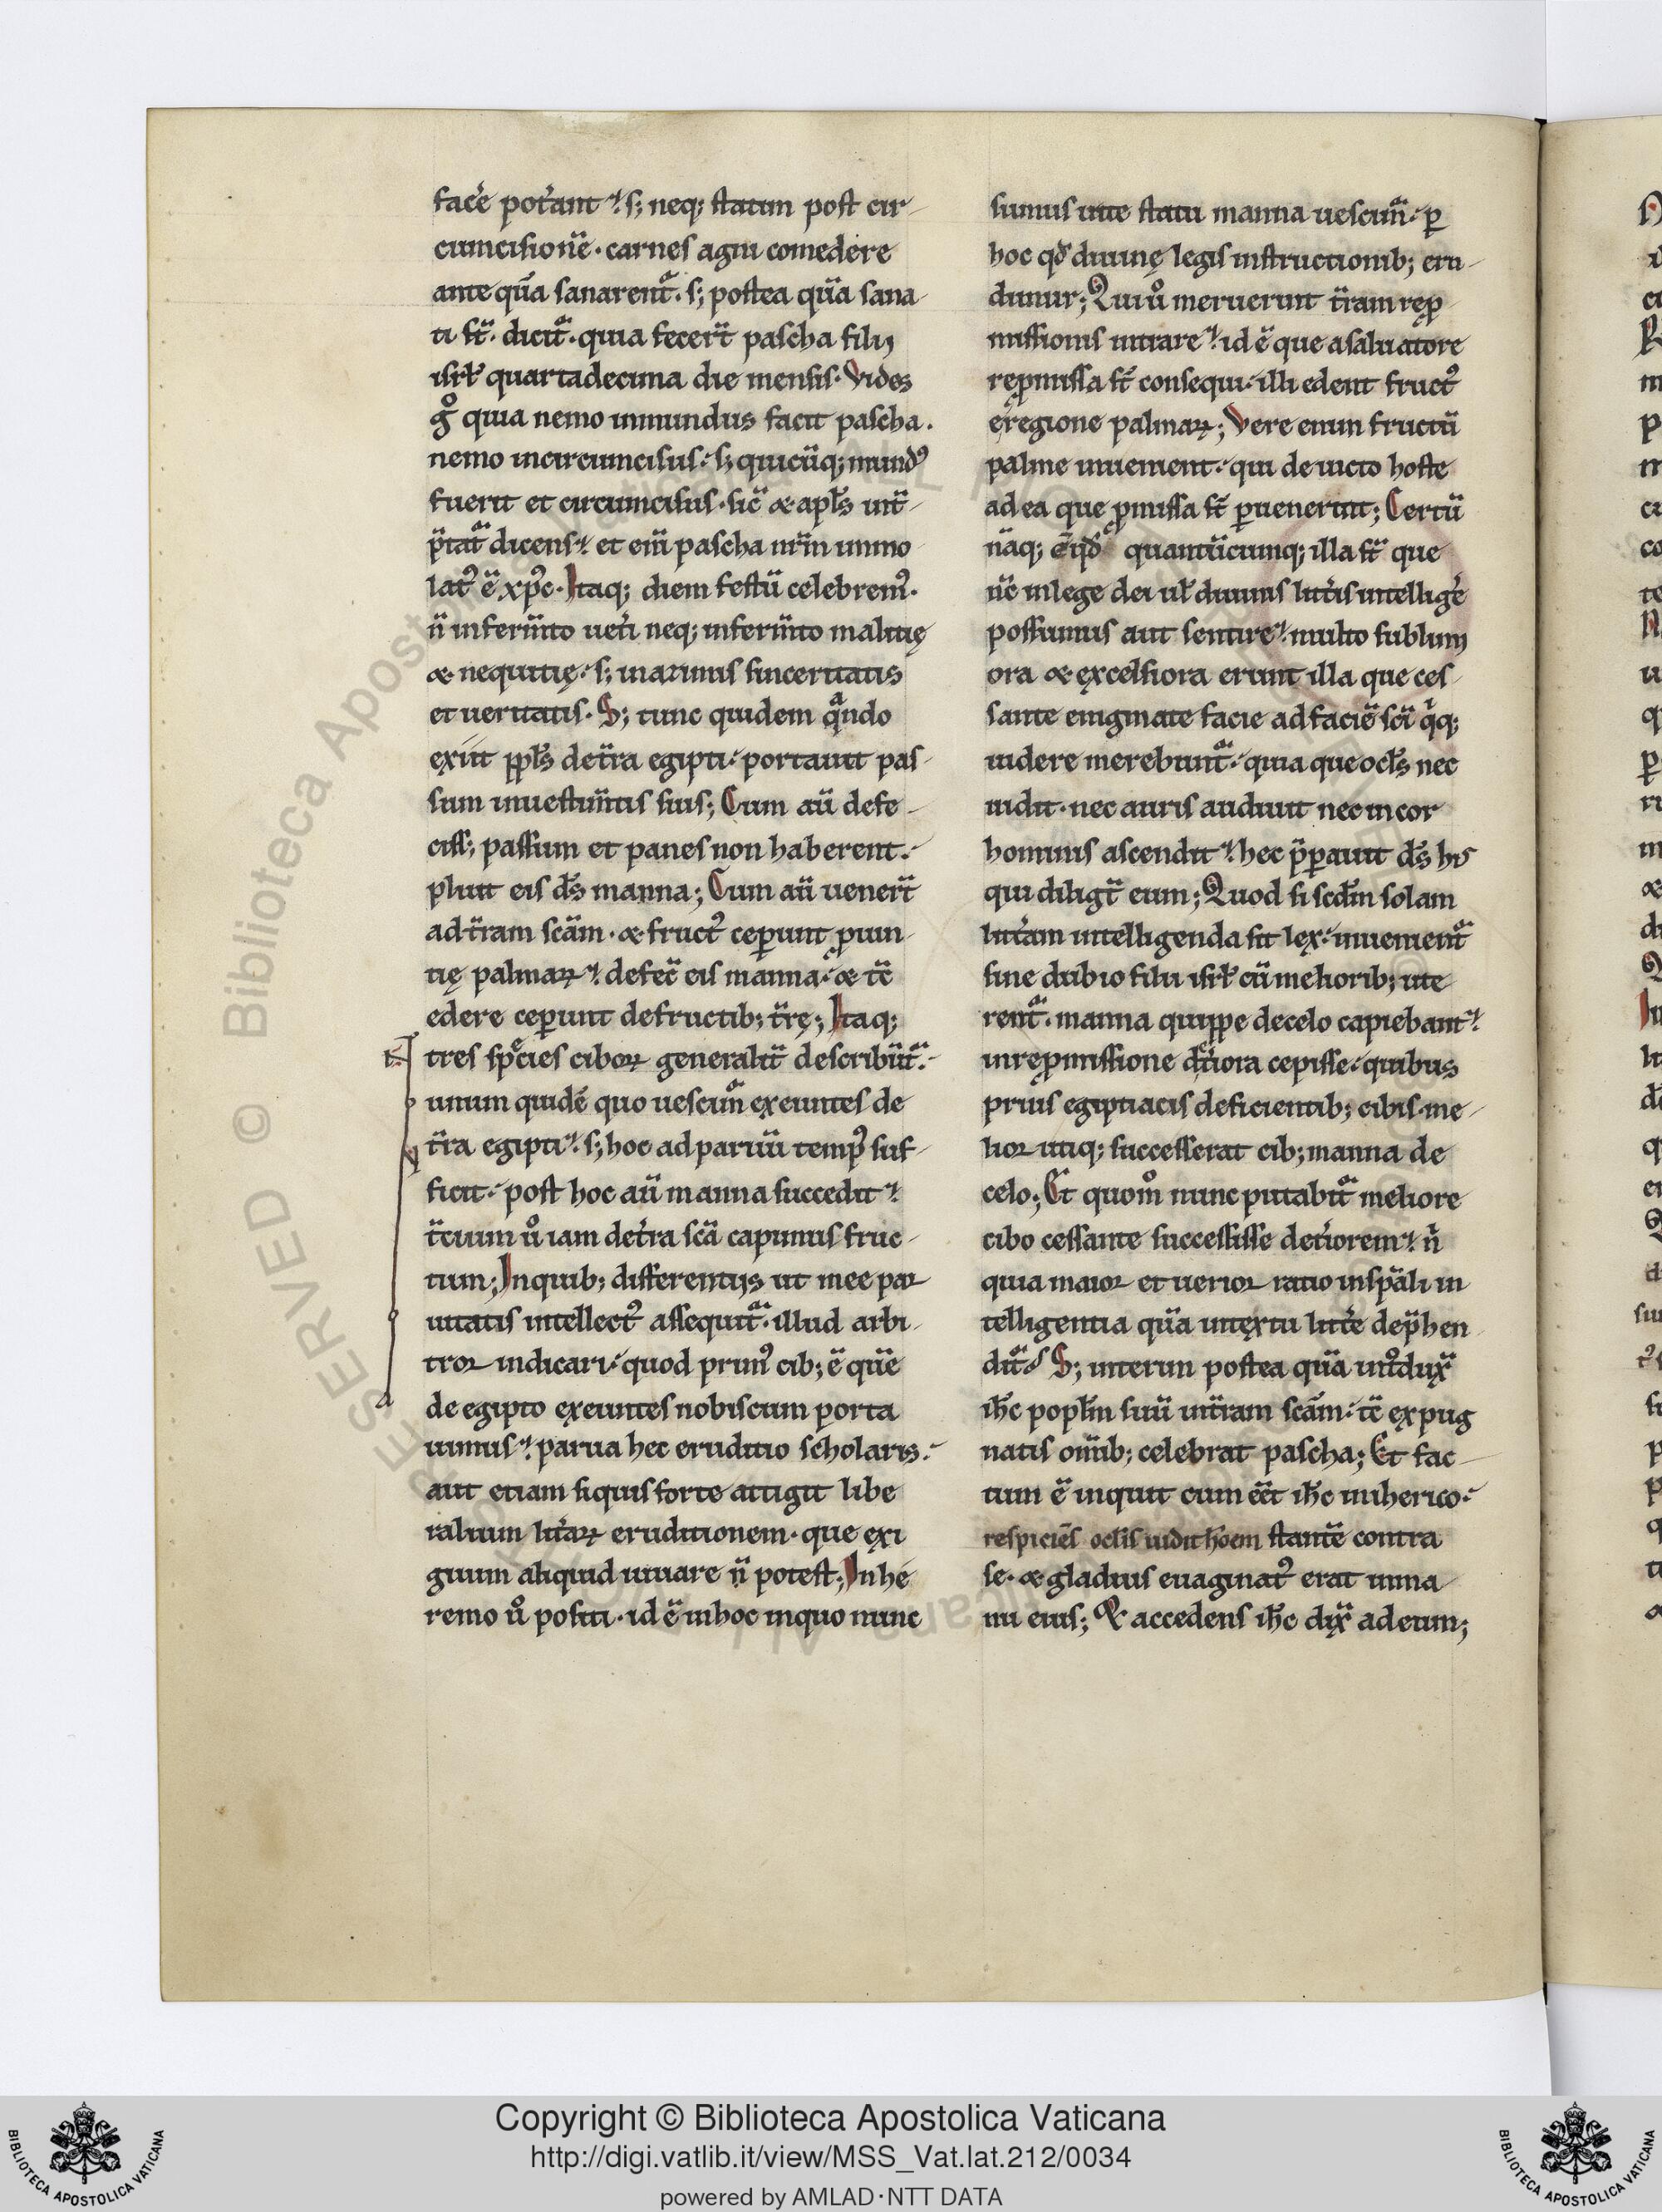 fac ̉e pot ̉ant s; neq; statim post cir-
cumcisionē. carnes agni comedere
ante qūa sanarent᷑. s; postea qūa sana-
ti st̄. dicit᷑. quia fecert̄ pascha filij
isrl̄ quartadecima die mensis. Vides
gͦ quia nemo inmundus facit pascha.
nemo incircumcisus. s; quicūq; mundꝰ
fuerit et circumcisus. sic̄ & apl̄s int̄-
p̄tat᷑ dicens. et eni̅ pascha nr̄m immo-
latꝰ ē xp̄c. Itaq; diem festū celebremꝰ.
n̄ infermn̄to uet̉i neq; infermn̄to malitię
& nequitię. s; inazimis sinceritatis
et ueritatis. S; tunc quidem qᷓndo
exiit ppl̄s det̄ra egipti. portauit pas-
sum inuestim̄tis suis; Cum aū defe-
ciss; passum et panes non haberent.
pluit eis ds̄ manna; Cum aū uenert̄
adt̄ram scām. & fructꝰ ceperunt ꝓuin-
tię palmaꝝ. defec̄ eis manna. & tc̄
edere ceperunt defructib; t̄rę; Itaq;
tres spēcies ciboꝝ generalit̄ describūt᷑.
unum quidē quo uescim᷑ exeuntes de
t̄ra egipti. s; hoc ad paruū tempꝰ suf-
ficit. post hoc aū manna succedit
t̄cium uͦ iam det̉ra scā capimus fruc-
tum; Inquib; differentijs ut mee par-
uitatis intellectꝰ assequit᷑. illud arbi-
tror indicari. quod primꝰ cib; ē quē
de egipto exeuntes nobiscum porta
uimus. parua hec eruditio scholaris.
aut etiam siquis forte attigit libe
ralium lit̉aꝝ eruditionem. que exi
guum aliquid iuuare n̄ potest; Inhe
remo uͦ positi. id ē inhoc inquo nunc
sumus uite statu manna uescim᷑. ꝑ
hoc qd̄ diuinę legis instructionib; eru-
dimur; Qui uͦ meruerunt t̄ram reꝓ-
missionis intrare. id ē que asaluatore
reꝓmissa st̄ consequi. illi edent fructꝰ
eregione palmaꝝ; Vere enim fructū
palme inuenient. qui deuicto hoste
ad ea que ꝓmissa st̄ ꝑuenerunt; Certū
nāq; ē qd̄ quantūcumq; illa st̄ que
nc̄ inlege dei ul̄ diuinis litt̉is intellig̉e
possumus aut sentire. multo sublimi
ora & excelsiora erunt illa que ces-
sante enigmate facie ad faciē sc̄i qͥq;
uidere merebunt᷑. quia que ocl̄s nec
uidit. nec auris audiuit nec in cor
hominis ascendit. hec p̄parauit ds̄ his
qui diligt̄ eum; Quod si scd̄m solam
litt̉am intelligenda sit lex. inuenient᷑
sine dubio filii isrl̄ cū meliorib; ute
rent᷑. manna quippe decelo capiebant.
inreꝓmissione det̉iora cepisse. quibus
prius egiptiacis deficientib; cibis. me-
lior utiq; successerat cib; manna de
celo; Et quomͦ nunc putabit᷑ meliore
cibo cessante successisse det̉iorem. nͥ
quia maior et uerior ratio inspāli in
telligentia qūa intextu litt̉e dep̄hen
dit᷑. S; interim postea qūa intͦduxᷓ
ih̄c popl̄m suū int̄ram scām. tc̄ expug
natis omi̅b; celebrat pascha; Et fac-
tum ē inquit cum eēt ih̄c inihericо.
respiciēs ocl̄is uidit hōem stantē contra
se. & gladius euaginatꝰ erat inma-
nu eius; & accedens ih̄c dixᷓ ad eum;
RESERVED © Biblioteca Apostolica Vaticana
Copyright © Biblioteca Apostolica Vaticana
http://digi.vatlib.it/view/MSS_Vat.lat.212/0034
powered by AMLAD·NTT DATA
BIBLIOTECA APOSTOLICA VATICANA
BIBLIOTECA APOSTOLICA VATICANA